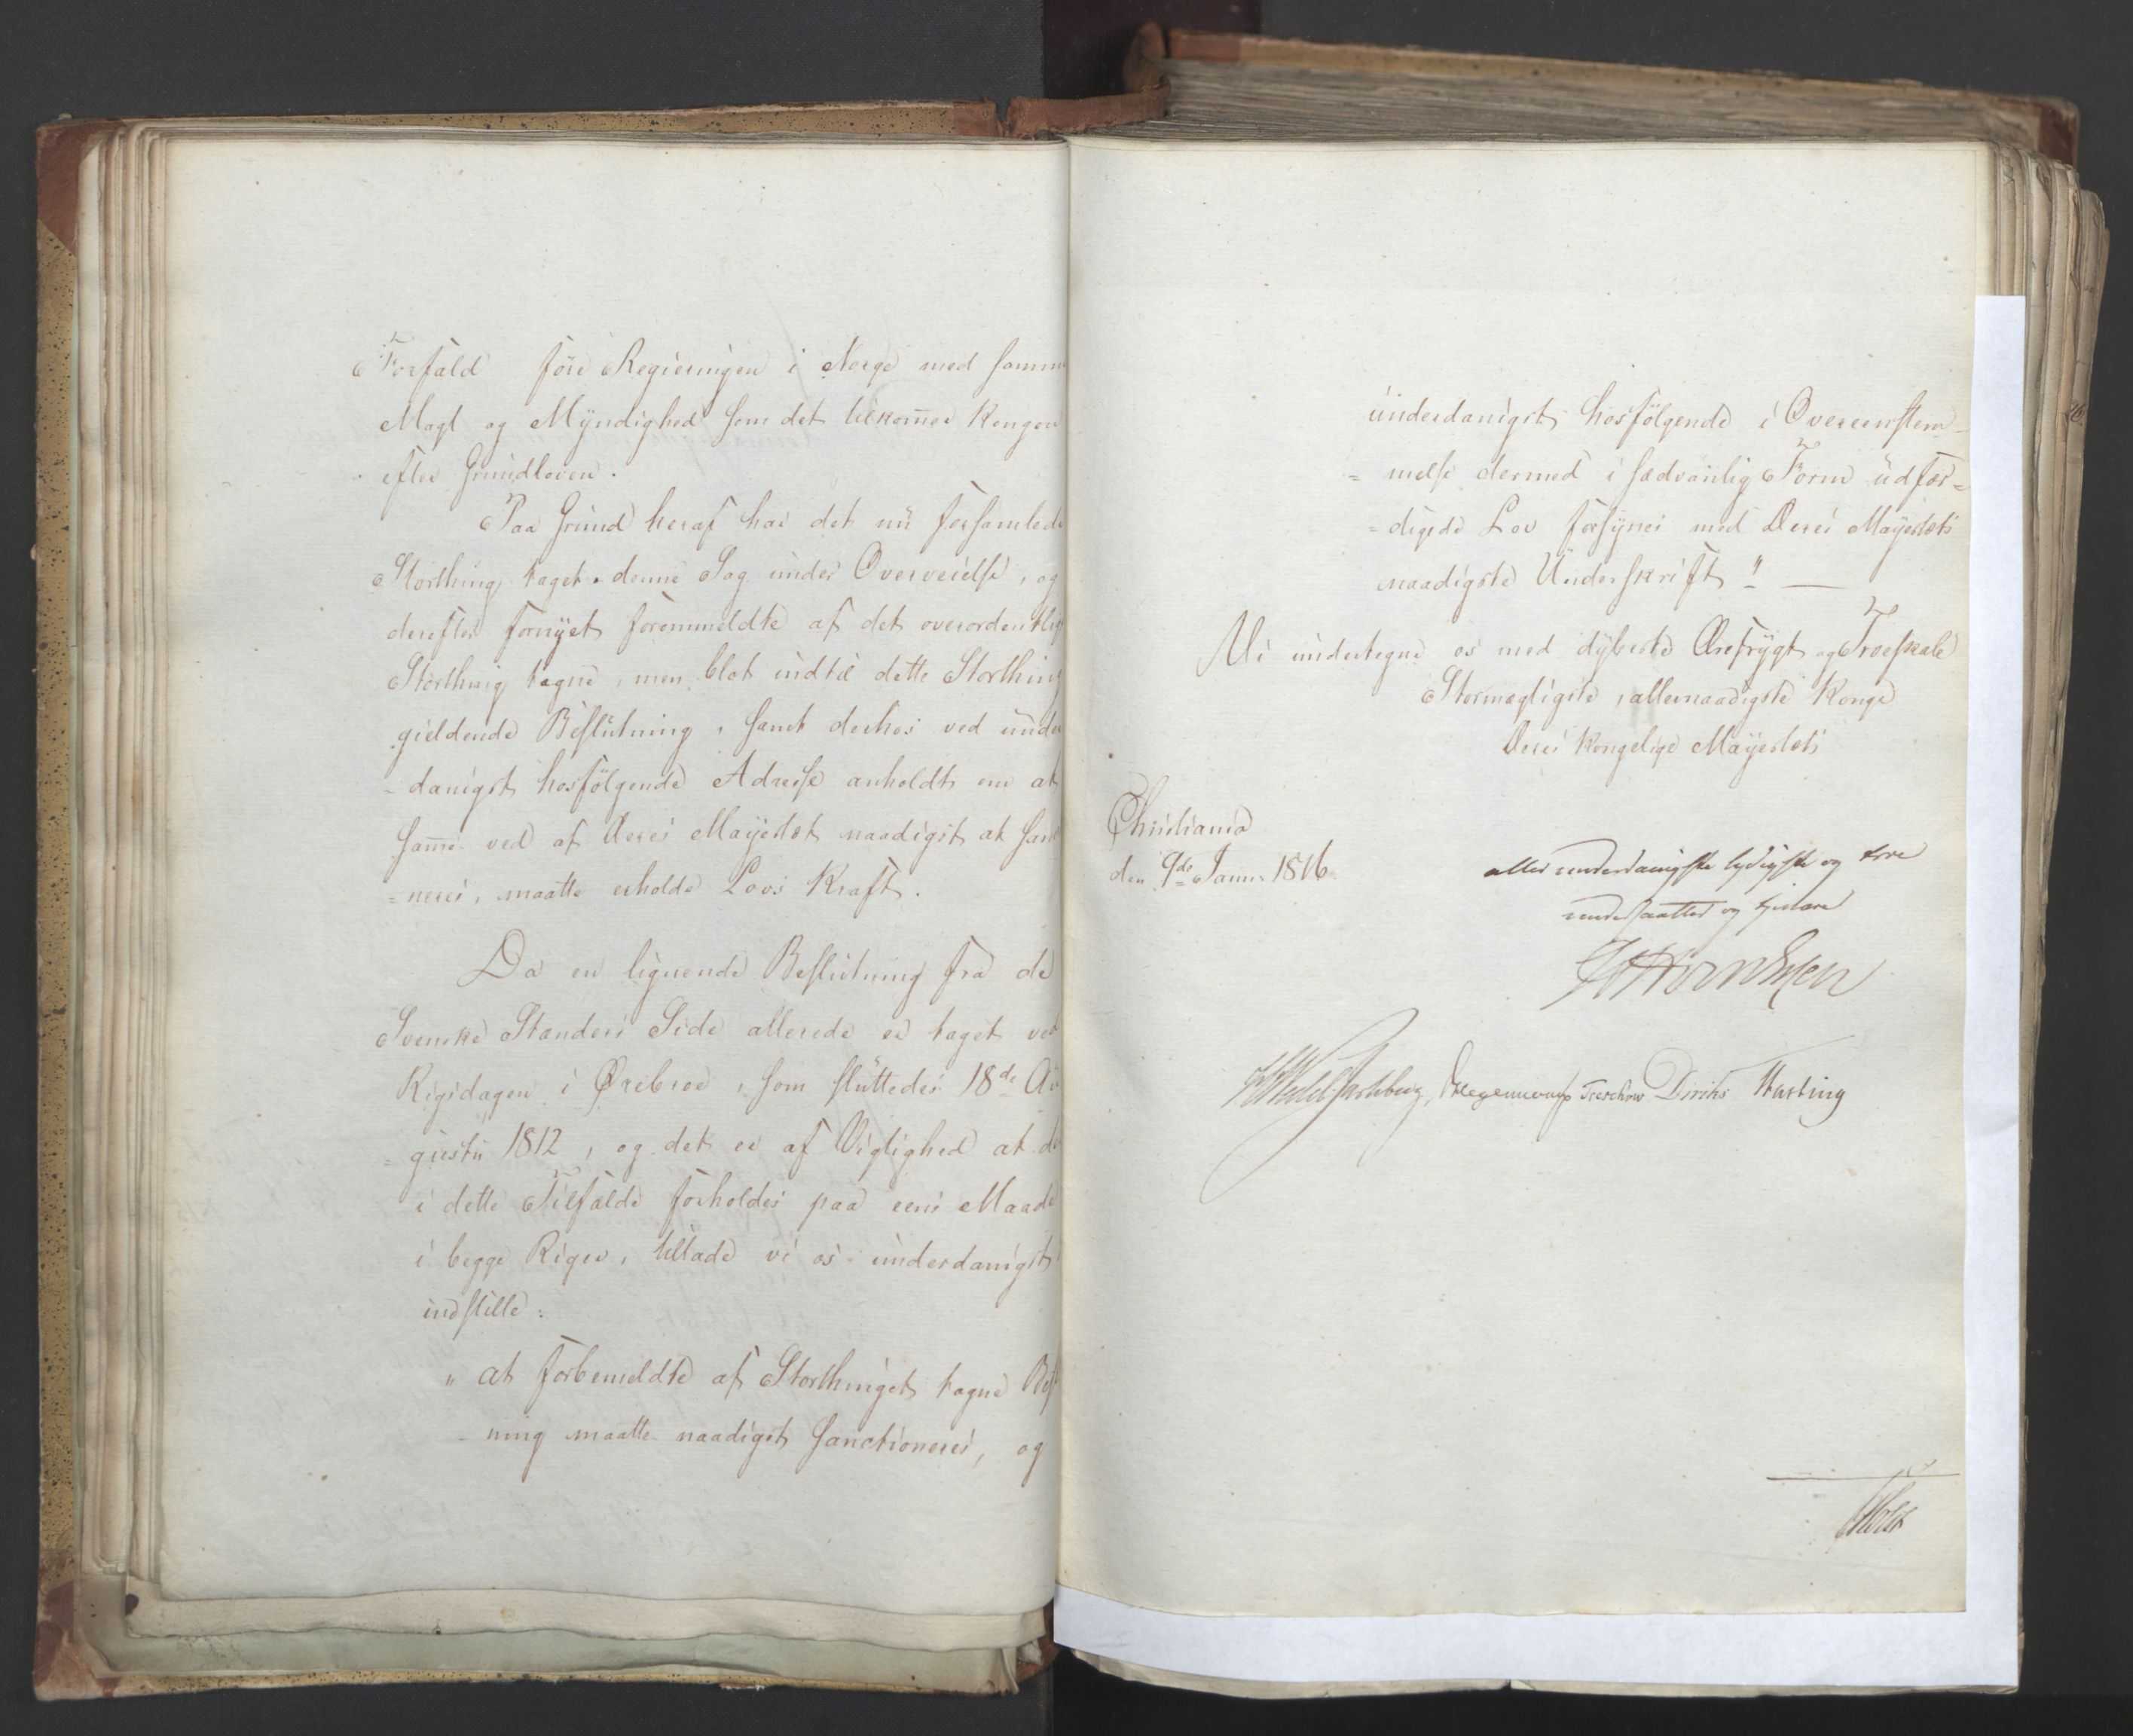 Forfald före Regieringen i Norge med samme
Magt og Myndighed som det tilkom̅er Kongen
efter Grundloven.
Paa Grund heraf har det nu forsamlede
Storthing taget denne Sag under Overveielse, og
derefter fornyet forommeldte af det overordentlige
Storthing tagne, men blot indtil dette Storthing
gieldende Beslutning, samt derhos ved under
-danigst hosfölgende Adresse anholdt om at
sam̅e ved af Deres Mayestæt naadigst at sanc
=neres, maatte erholde Lovs Kraft.
Da en lignende Beslutning fra de
Svenske Stænders Side allerede er taget ved
Rigsdagen i Ørebroe, som sluttedes 18de Au
=gustii 1812, og det er af Vigtighed at de
i dette Tilfælde forholdes paa eens Maade
i begge Riger, tillade vi os underdanigst
indstille:
" at forbemeldte af Storthinget tagne Besl
ning maatte naadigst sanctioneres, og
underdanigst hosfölgende i Overeenstem-
= melse dermed i sædvanlig Form udfær=
=digede Lov forsynes med Deres Mayestæts
naadigste Underskrift " —
Vi undertegne os med dybeste Ærefrygt og Troeskab
Stormægtigste, allernaadigste Konge
Deres Kongelige Mayestæts
Christiania
den 9de Janur 1816.
aller underdanigste lydigste og troe
undersaatter og tienere
Wedel Jarlsberg, Hegermann Treschow Diriks Hasting
Holst